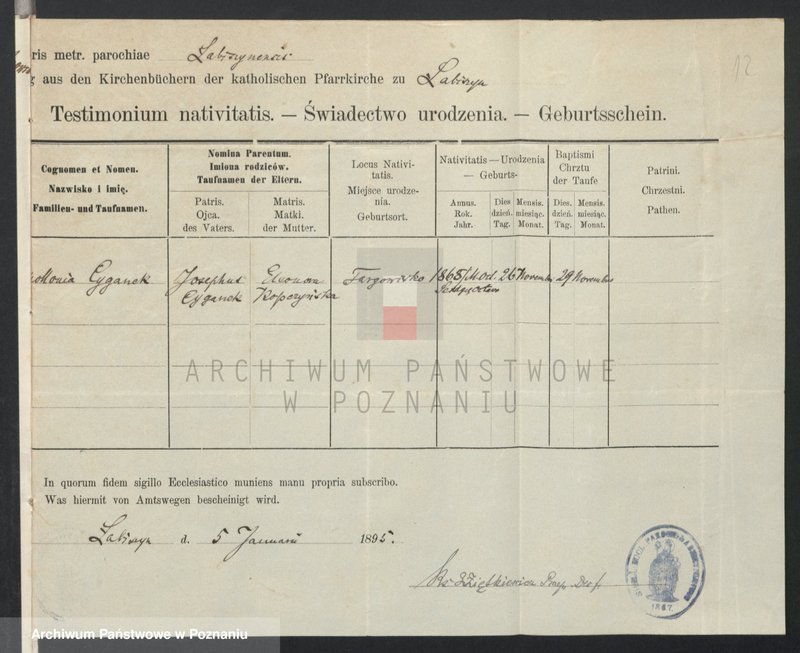 ris metr. parochiae Łabiszynensis
g aus den Kirchenbüchern der katholischen Pfarrkirche zu Labiszyn
12
Testimonium nativitatis. — Świadectwo urodzenia. — Geburtsschein.
Cognomen et Nomen.
Nazwisko i imię.
Familien- und Taufnamen.
Nomina Parentum.
Imiona rodziców.
Taufnamen der Eltern.
Patris.
Ojca.
des Vaters.
Matris.
Matki.
der Mutter.
Locus Nativi-
tatis.
Miejsce urodze-
nia.
Geburtsort.
Nativitatis — Urodzenia
— Geburts-
Annus.
Rok.
Jahr.
Dies
dzień.
Tag.
Mensis.
miesiąc.
Monat.
Baptismi
Chrztu
der Taufe
Dies.
dzień.
Tag.
Mensis.
miesiąc.
Monat.
Patrini.
Chrzestni.
Pathen.
Cyganek
Josephus
Cyganek
Eleonora
Kopczyńska
Targowisko
1865
26 Novembr
29 Novembris
ARCHIWUM PAŃSTWOWE
W POZNANIU
In quorum fidem sigillo Ecclesiastico muniens manu propria subscribo.
Was hiermit von Amtswegen bescheinigt wird.
Łabiszyn d. 5 Januarii 1895.
1867.
Archiwum Państwowe w Poznaniu